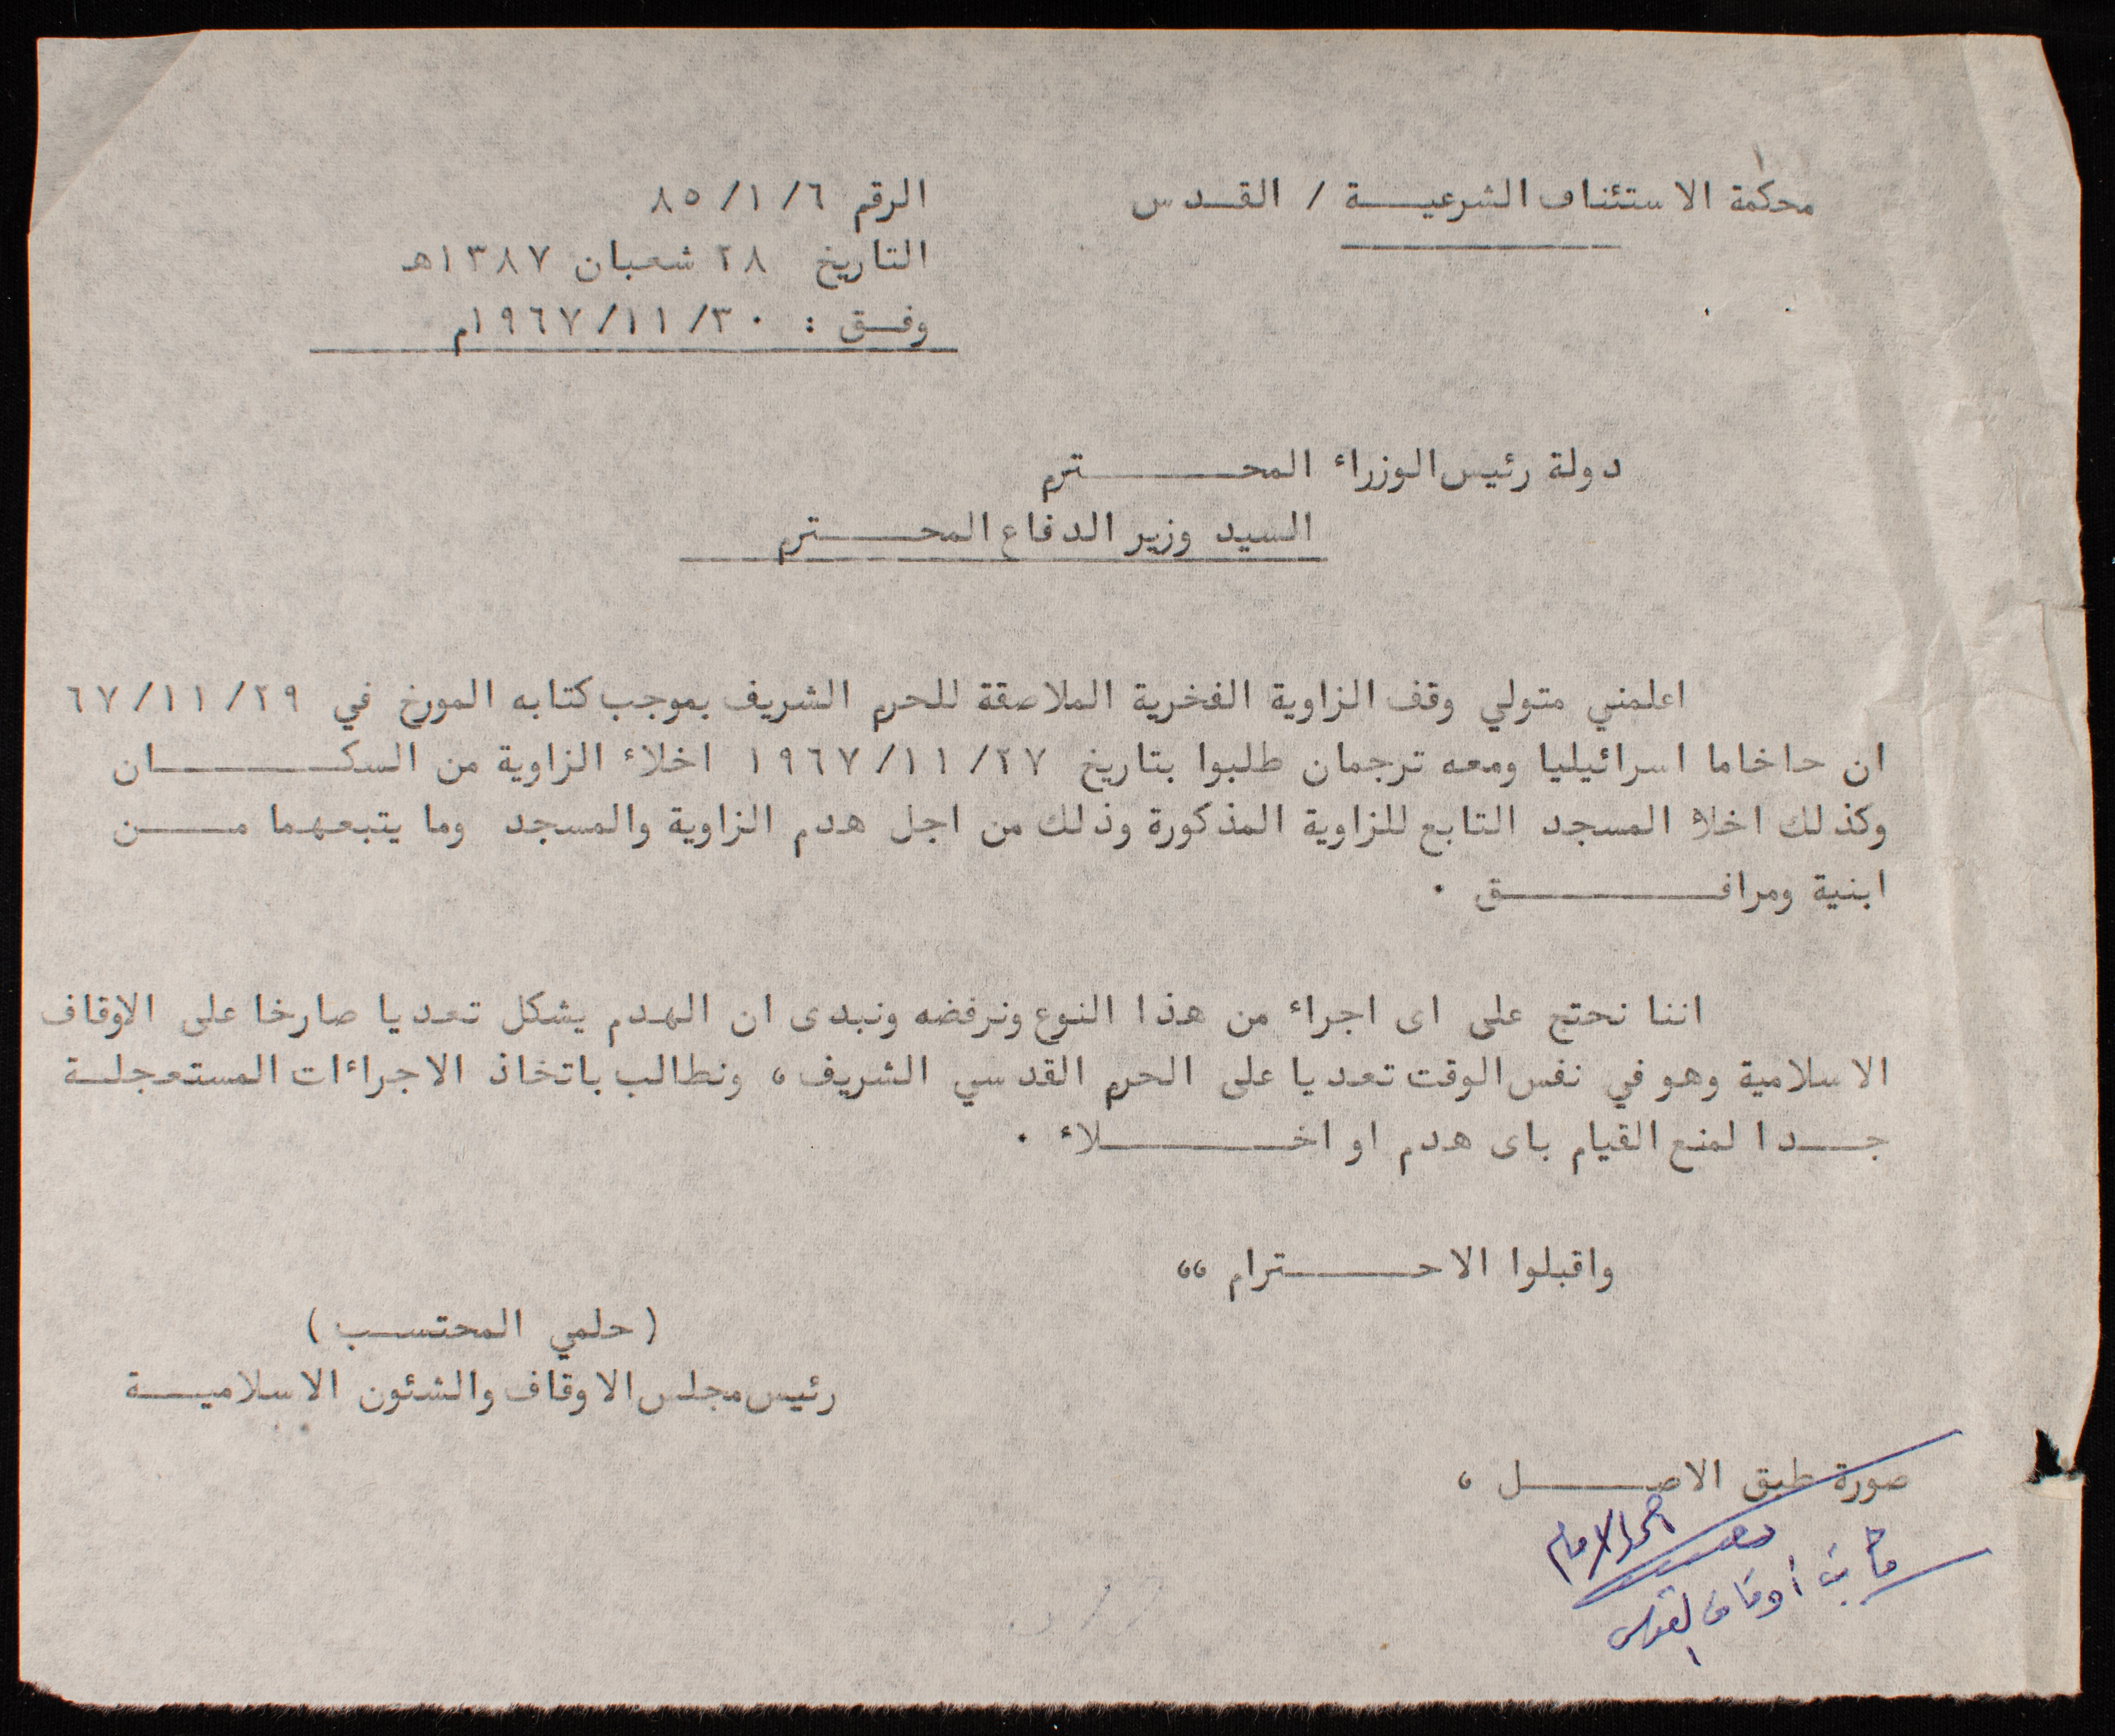 محكمة الاستئناف الشرعية / القدس
الرقم ٨٥/١/٦
التاريخ ٢٨ شعبان ١٣٨٧هـ
وفق : ١٩٦٧/١١/٣٠م
دولة رئيس الوزراء المحترم
السيد وزير الدفاع المحترم
اعلمني متولي وقف الزاوية الفخرية الملاصقة للحرم الشريف بموجب كتابه المورخ في ٦٧/١١/٢٩
ان حاخاما اسرائيليا ومعه ترجمان طلبوا بتاريخ ١٩٦٧/١١/٢٧ اخلاء الزاوية من السكان
وكذلك اخلاء المسجد التابع للزاوية المذكورة وذلك من اجل هدم الزاوية والمسجد وما يتبعهما من
ابنية ومرافق ٠
اننا نحتج على اى اجراء من هذا النوع ونرفضه ونبدى ان الهدم يشكل تعديا صارخا على الاوقاف
الاسلامية وهو في نفس الوقت تعديا على الحرم القدسي الشريف، ونطالب باتخاذ الاجراءات المستعجلة
جدا لمنع القيام باى هدم او اخلاء ٠
واقبلوا الاحترام ،،
(حلمي المحتسب)
رئيس مجلس الاوقاف والشئون الاسلامية
صورة طبق الاصل ،
أوقاف القدس